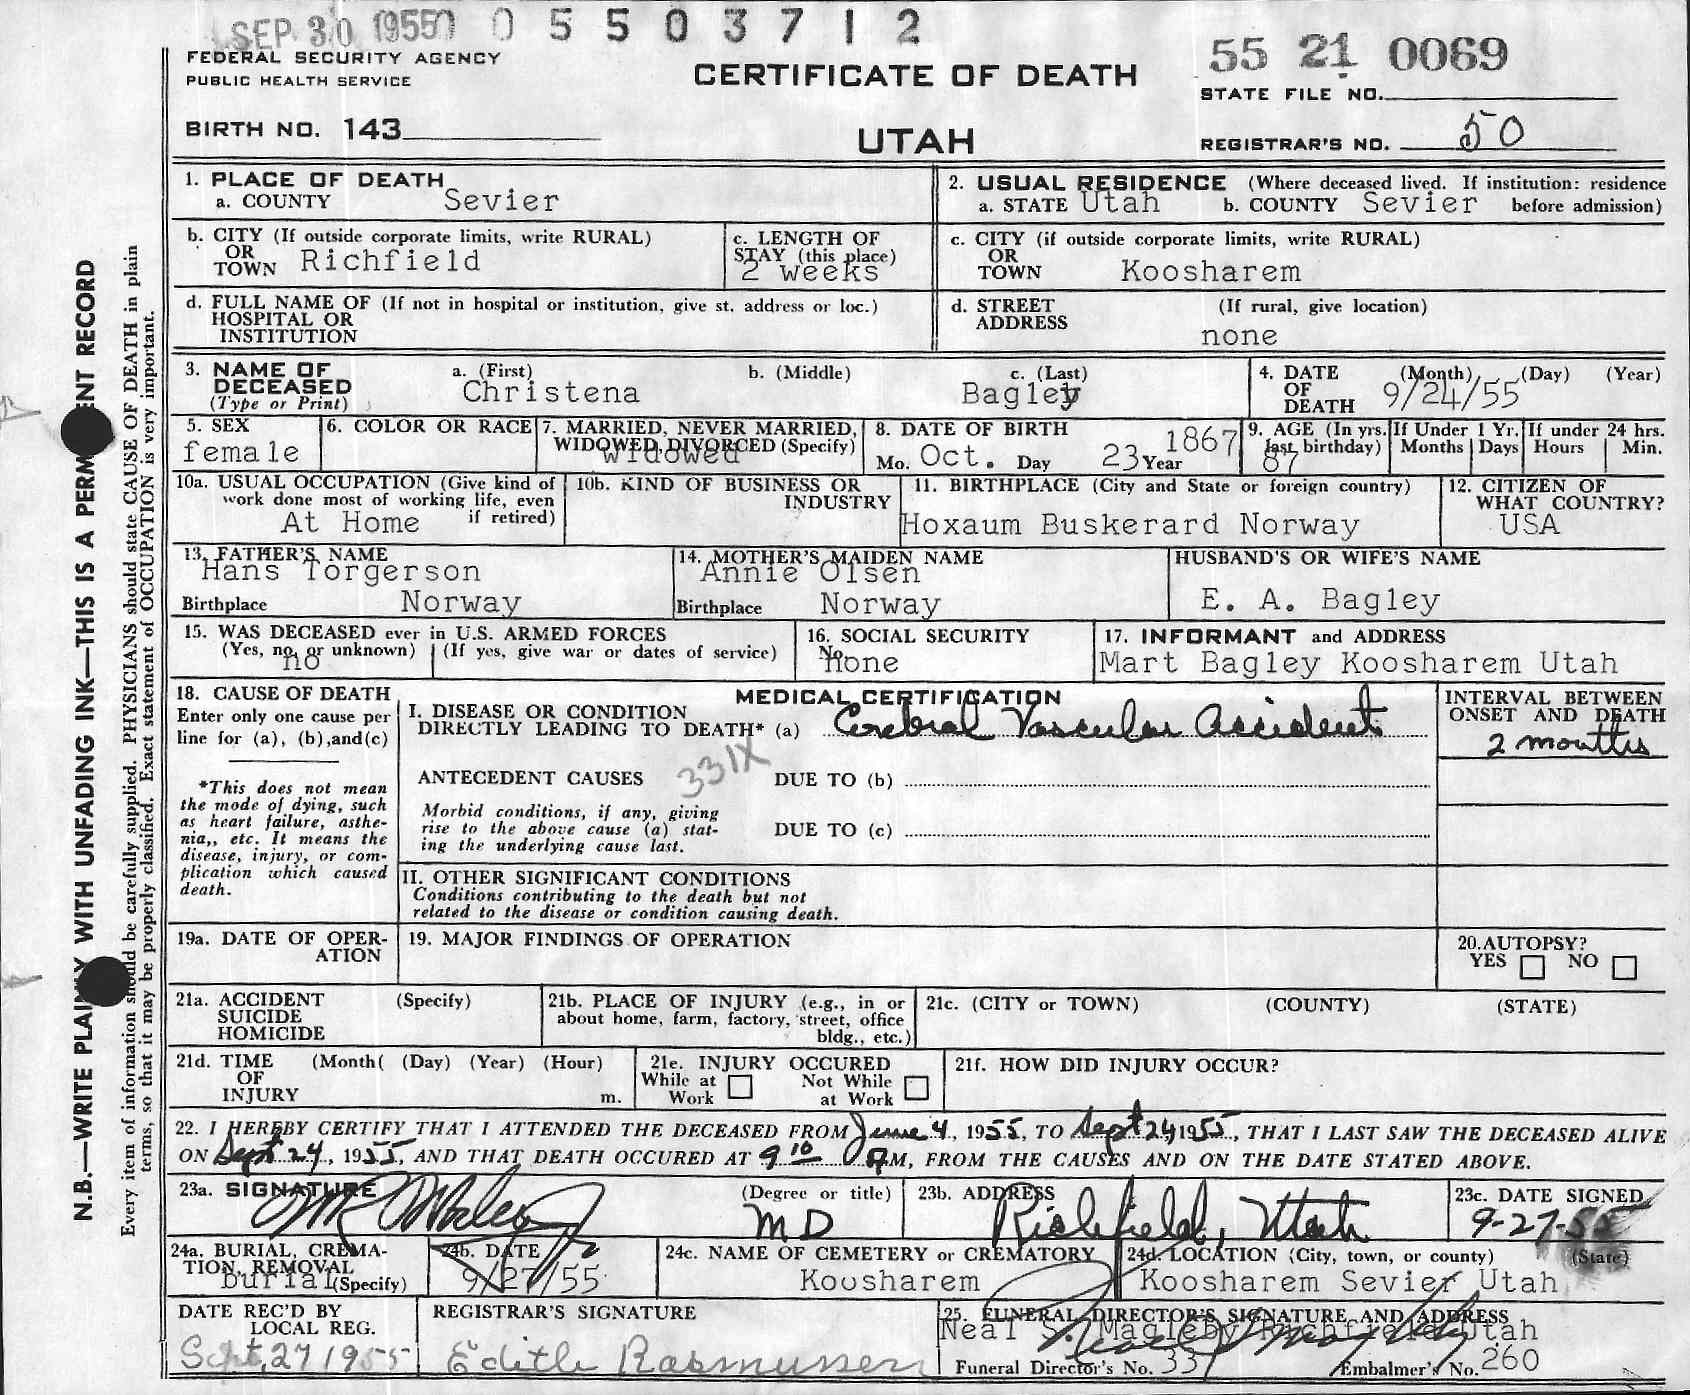 SEP 30 1955 0 5 5 0 3 7 1 2
55 21 0069
FEDERAL SECURITY AGENCY
PUBLIC HEALTH SERVICE
CERTIFICATE OF DEATH
STATE FILE NO.
BIRTH NO. 143
UTAH
REGISTRAR'S NO. 50
N.B.—WRITE PLAINLY WITH UNFADING INK—THIS IS A PERM ENT RECORD
Every item of information should be carefully supplied. PHYSICIANS should state CAUSE OF DEATH in plain
terms, so that it may be properly classified. Exact statement of OCCUPATION is very important.
1. PLACE OF DEATH
a. COUNTY Sevier
2. USUAL RESIDENCE (Where deceased lived. If institution: residence
a. STATE Utah b. COUNTY Sevier before admission)
b. CITY (If outside corporate limits, write RURAL)
OR
TOWN Richfield
c. LENGTH OF
STAY (this place)
2 weeks
c. CITY (if outside corporate limits, write RURAL)
OR
TOWN Koosharem
d. FULL NAME OF (If not in hospital or institution, give st. address or loc.)
HOSPITAL OR
INSTITUTION
d. STREET (If rural, give location)
ADDRESS
none
3. NAME OF
DECEASED
(Type or Print)
a. (First) b. (Middle) c. (Last)
Christena Bagley
4. DATE (Month) (Day) (Year)
OF
DEATH 9/24/55
5. SEX
female
6. COLOR OR RACE
7. MARRIED, NEVER MARRIED,
WIDOWED, DIVORCED (Specify)
widowed
8. DATE OF BIRTH
Mo. Oct. Day 23 Year 1867
9. AGE (In yrs.
last birthday)
87
If Under 1 Yr.
Months Days
If under 24 hrs.
Hours Min.
10a. USUAL OCCUPATION (Give kind of
work done most of working life, even
if retired)
At Home
10b. KIND OF BUSINESS OR
INDUSTRY
11. BIRTHPLACE (City and State or foreign country)
Hoxaum Buskerard Norway
12. CITIZEN OF
WHAT COUNTRY?
USA
13. FATHER'S NAME
Hans Torgerson
Birthplace Norway
14. MOTHER'S MAIDEN NAME
Annie Olsen
Birthplace Norway
HUSBAND'S OR WIFE'S NAME
E. A. Bagley
15. WAS DECEASED ever in U.S. ARMED FORCES
(Yes, no, or unknown) (If yes, give war or dates of service)
no
16. SOCIAL SECURITY
No.
none
17. INFORMANT and ADDRESS
Mart Bagley Koosharem Utah
18. CAUSE OF DEATH
Enter only one cause per
line for (a), (b), and (c)
*This does not mean
the mode of dying, such
as heart failure, asthe-
nia,, etc. It means the
disease, injury, or com-
plication which caused
death.
MEDICAL CERTIFICATION
I. DISEASE OR CONDITION
DIRECTLY LEADING TO DEATH* (a) Cerebral Vascular Accident
INTERVAL BETWEEN
ONSET AND DEATH
2 months
331X
ANTECEDENT CAUSES DUE TO (b)
Morbid conditions, if any, giving
rise to the above cause (a) stat-
ing the underlying cause last.
DUE TO (c)
II. OTHER SIGNIFICANT CONDITIONS
Conditions contributing to the death but not
related to the disease or condition causing death.
19a. DATE OF OPER-
ATION
19. MAJOR FINDINGS OF OPERATION
20. AUTOPSY?
YES NO
21a. ACCIDENT (Specify)
SUICIDE
HOMICIDE
21b. PLACE OF INJURY (e.g., in or
about home, farm, factory, street, office
bldg., etc.)
21c. (CITY or TOWN) (COUNTY) (STATE)
21d. TIME (Month( (Day) (Year) (Hour)
OF
INJURY m.
21e. INJURY OCCURED
While at Not While
Work at Work
21f. HOW DID INJURY OCCUR?
22. I HEREBY CERTIFY THAT I ATTENDED THE DECEASED FROM June 4, 1955, TO Sept 24, 1955, THAT I LAST SAW THE DECEASED ALIVE
ON Sept 24, 1955, AND THAT DEATH OCCURED AT 9 10 M, FROM THE CAUSES AND ON THE DATE STATED ABOVE.
23a. SIGNATURE (Degree or title)
MD
23b. ADDRESS
Richfield, Utah
23c. DATE SIGNED
9-27-55
24a. BURIAL, CREMA-
TION, REMOVAL
burial (Specify)
24b. DATE
9/27/55
24c. NAME OF CEMETERY or CREMATORY
Koosharem
24d. LOCATION (City, town, or county) (State)
Koosharem Sevier Utah
DATE REC'D BY
LOCAL REG.
Sept. 27 1955
REGISTRAR'S SIGNATURE
Edith Rasmussen
25. FUNERAL DIRECTOR'S SIGNATURE AND ADDRESS
Neal S. Magleby Richfield Utah
Funeral Director's No. 337 Embalmer's No. 260